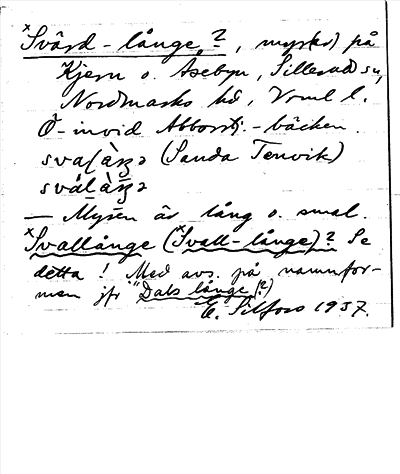 ×Svärd-långe, ?, myr(kr) på
Kjern o. Asebyn, Sillerud sn,
Nordmarks hd, Vrml l.
Ö- invid Abborrtj.-bäcken.
(Sanda Tenvik)
— Myren är lång o. smal.
×Svallånge (×Svall-långe)? Se
detta! Med avs. på namnfor-
men jfr "Dals långe (?)
E. Silfors 1937.